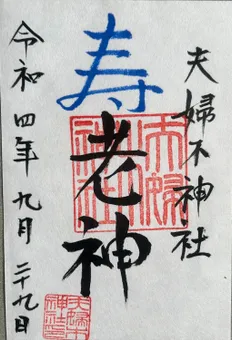 夫婦木神社
寿
老神
令和四年 九月 二十九日
夫婦木神社